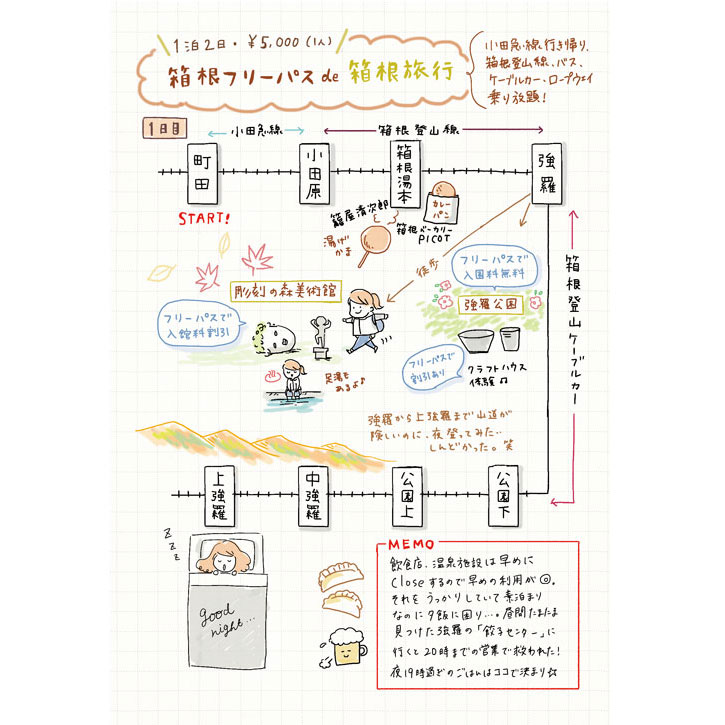 1泊2日・¥5,000(1人)
箱根フリーパス de 箱根旅行
小田急線行き帰り、
箱根登山線、バス、
ケーブルカー、ロープウェイ
乗り放題!
1日目
小田急線
箱根登山線
町田
小田原
箱根湯本
強羅
START!
籠屋清次郎
揚げかま
カレーパン
箱根ベーカリー
PICOT
徒歩
フリーパスで
入園料無料
強羅公園
箱根登山ケーブルカー
彫刻の森美術館
フリーパスで
入館料割引
足湯も
あるよ♪
フリーパスで
割引あり
クラフトハウス
体験♫
強羅から上強羅まで山道が
険しいのに、夜登ってみた…
しんどかった。笑
上強羅
中強羅
公園上
公園下
z z z
good
night...
MEMO
飲食店、温泉施設は早めに
closeするので早めの利用が◎。
それをうっかりしていて素泊まり
なのに夕飯に困り…。昼間たまたま
見つけた強羅の「餃子センター」に
行くと20時までの営業で救われた!
夜19時過ぎのごはんはココで決まり☆